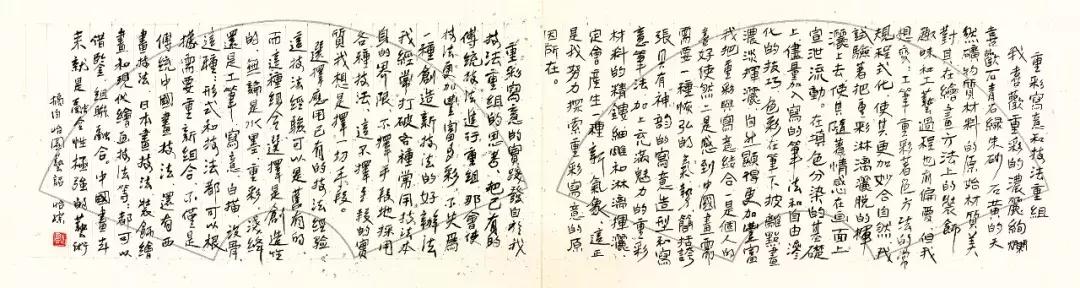 重彩寫意和技法重組
我喜歡重彩的濃麗絢爛
喜歡石青石綠朱砂石黃的天
然礦物質材料的原始材質美
對其在繪畫方法上的裝飾
趣味和工藝過程也有偏愛但我
想變工筆重彩著色方法的常
規程式化使其更加妙合自然我
試驗著把重彩淋漓灑脫的揮
灑上去使其隨著情感在画面上
宣泄流動。在填色分染的基礎
上儘量介入寫的筆法和自由滲
化的技巧色彩在筆下披離點畫
濃淡揮灑自身顯得更加豐富
我把重彩與寫意結合一是個人的
喜好使然二是感到中國畫需
需要一種恢弘的氣勢簡樸誇
張具有神韵的寫意造型和寫
意筆法加上充滿魅力的重彩
材料的精鏤細雕和淋漓揮灑
定會產生一種新氣象。這正
是我努力探索重彩寫意的原
因所在。
重彩寫意的實踐發自於我
技法重組的思考。把已有的
傳統技法進行重組那會使
技法更加豐富多彩不失爲
一種創造新技法的好辦法
我經常打破各種常用技法本
自的界限不擇手段地採用
各種技法這不擇手段的實
質我想是選擇一切手段。
選擇應用已有的技法經驗
這技法經驗可以是舊有的
而這種重組合選擇是創造性
的無論是水墨重彩淺絳
還是工筆寫意白描沒骨
這種形式和技法都可以根
據需要重新組合不僅是
傳統中國畫技法還有西
畫技法日本畫技法裝飾繪
畫和現代繪畫技法等都可以
借鑒組聯融合。中國畫本
來就是融合性極強的藝術
摘自 藝話